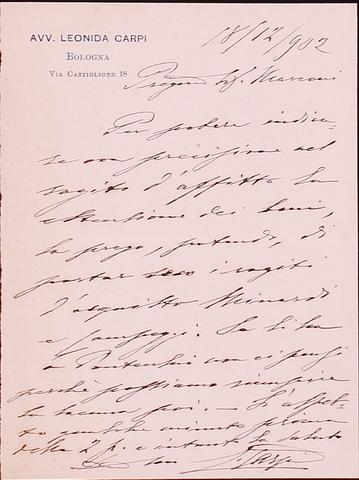 AVV. LEONIDA CARPI
BOLOGNA
VIA CASTIGLIONE 18
18/12/902
Pregmo Sig. Marconi
Per potere indica-
re con precisione nel
rogito d'affitto la
estensione dei beni,
la prego, potendo, di
portar seco i rogiti
d'acquisto Minardi
e Sampeggi. Se li ha
a Pontecchio non ci pensi
perchè possiamo riempire
la lacuna poi. — L'aspet-
to qualche minuto prima
delle 2 p. e intanto la saluto
Carpi